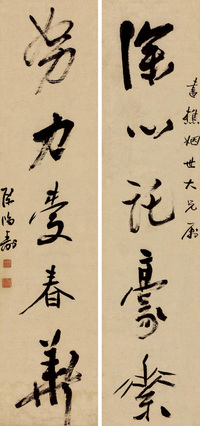 書樵姻世大兄屬
深心託豪素
努力愛春華
陳鴻壽